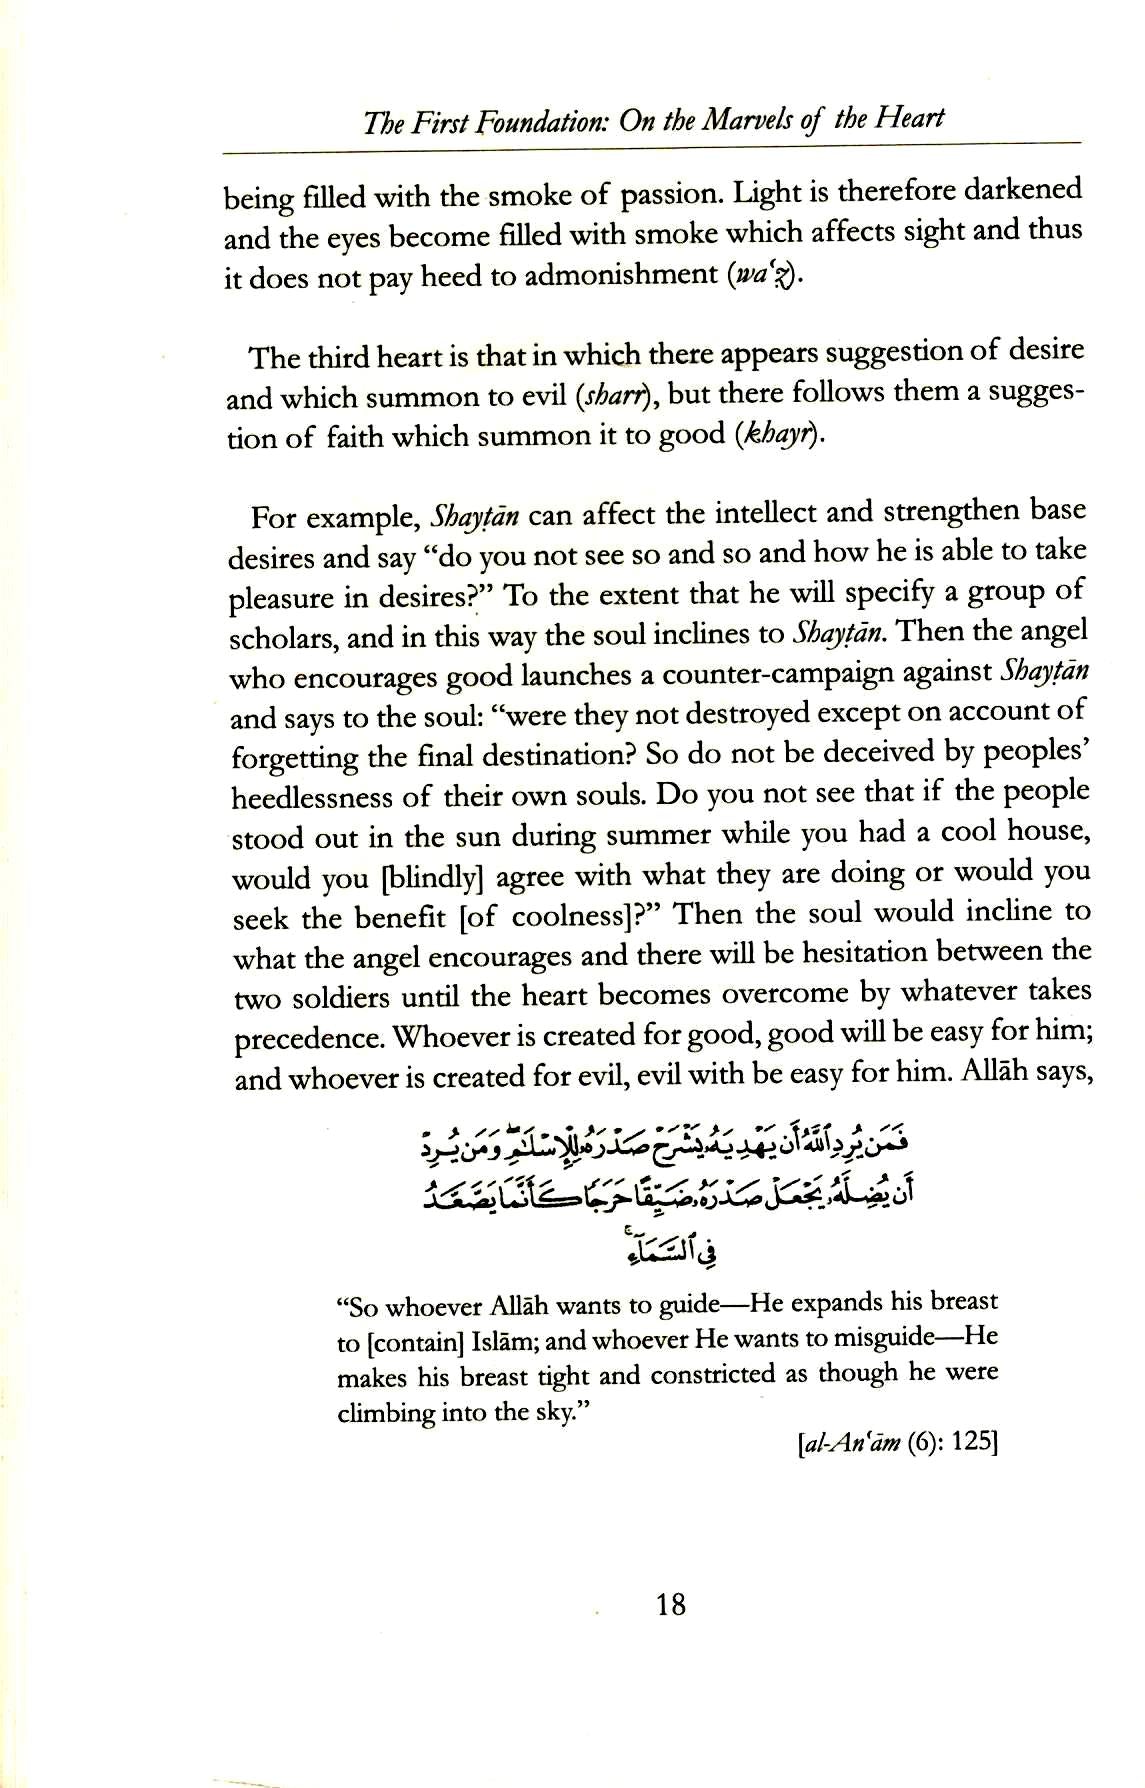 The First Foundation: On the Marvels of the Heart
being filled with the smoke of passion. Light is therefore darkened
and the eyes become filled with smoke which affects sight and thus
it does not pay heed to admonishment (waʿẓ).
The third heart is that in which there appears suggestion of desire
and which summon to evil (sharr), but there follows them a sugges-
tion of faith which summon it to good (khayr).
For example, Shayṭān can affect the intellect and strengthen base
desires and say “do you not see so and so and how he is able to take
pleasure in desires?” To the extent that he will specify a group of
scholars, and in this way the soul inclines to Shayṭān. Then the angel
who encourages good launches a counter-campaign against Shayṭān
and says to the soul: “were they not destroyed except on account of
forgetting the final destination? So do not be deceived by peoples’
heedlessness of their own souls. Do you not see that if the people
stood out in the sun during summer while you had a cool house,
would you [blindly] agree with what they are doing or would you
seek the benefit [of coolness]?” Then the soul would incline to
what the angel encourages and there will be hesitation between the
two soldiers until the heart becomes overcome by whatever takes
precedence. Whoever is created for good, good will be easy for him;
and whoever is created for evil, evil with be easy for him. Allāh says,
فَمَن يُرِدِ ٱللَّهُ أَن يَهْدِيَهُۥ يَشْرَحْ صَدْرَهُۥ لِلْإِسْلَٰمِ ۖ وَمَن يُرِدْ
أَن يُضِلَّهُۥ يَجْعَلْ صَدْرَهُۥ ضَيِّقًا حَرَجًا كَأَنَّمَا يَصَّعَّدُ
فِى ٱلسَّمَآءِ ۚ
“So whoever Allāh wants to guide—He expands his breast
to [contain] Islām; and whoever He wants to misguide—He
makes his breast tight and constricted as though he were
climbing into the sky.”
[al-Anʿām (6): 125]
18